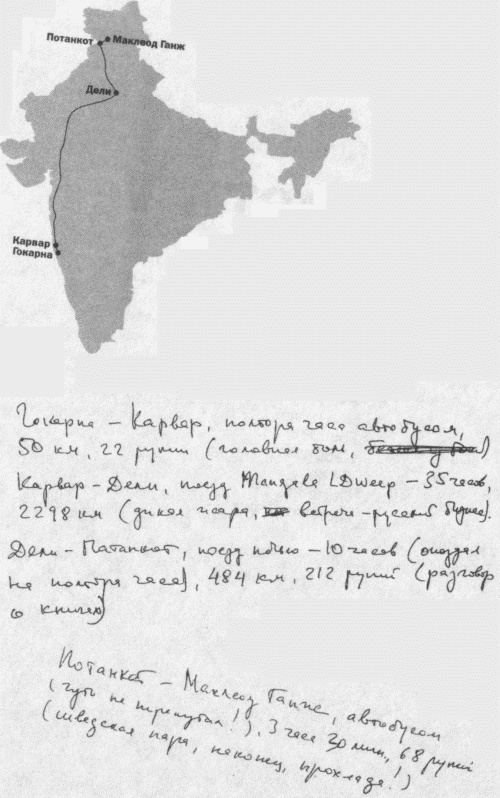 Потанкот
Маклеод Ганж
Дели
Карвар
Гокарна
Гокарна – Карвар, полтора часа автобусом,
50 км, 22 рупии (головная боль,
Карвар-Дели, поезд Mangala LDweep – 35 часов,
2298 км (дикая жара, встреча – русский
Дели-Патанкот, поезд ночью – 10 часов (опоздал
на полтора часа), 484 км, 212 рупий (разговор
о книгах)
Потанкот – Маклеод Ганж, автобусом
(чуть не тронулся!), 3 часа 30 мин, 68 рупий
(шведская пара, наконец, прохлада!)